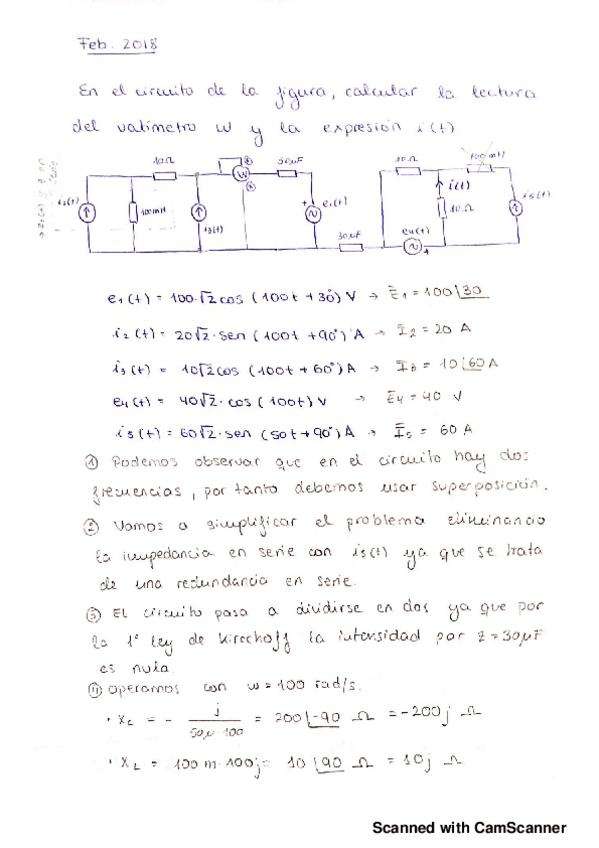 Feb. 2018
En el circuito de la figura, calcular la lectura
del vatímetro W y la expresión i(t)
10Ω
50μF
10Ω
100mH
W
i(t)
100mH
i3(t)
e1(t)
10Ω
i5(t)
30μF
e4(t)
e1(t) = 100·√2 cos (100t + 30°) V → Ē1 = 100|30
i2(t) = 20√2 · sen (100t + 90°) A → Ī2 = 20 A
i3(t) = 10√2 cos (100t + 60°) A → Ī3 = 10|60 A
e4(t) = 40√2 · cos (100t) V → Ē4 = 40 V
i5(t) = 60√2 · sen (50t + 90°) A → Ī5 = 60 A
① Podemos observar que en el circuito hay dos
frecuencias, por tanto debemos usar superposición.
② Vamos a simplificar el problema eliminando
la impedancia en serie con i5(t) ya que se trata
de una redundancia en serie.
③ El circuito pasa a dividirse en dos ya que por
la 1ª ley de Kirechoff la intensidad por z = 30μF
es nula.
④ Operamos con w = 100 rad/s.
· Xc = - j / 50μ·100 = 200|-90 Ω = -200j Ω
· XL = 100m·100j = 10|90 Ω = 10j Ω
Scanned with CamScanner